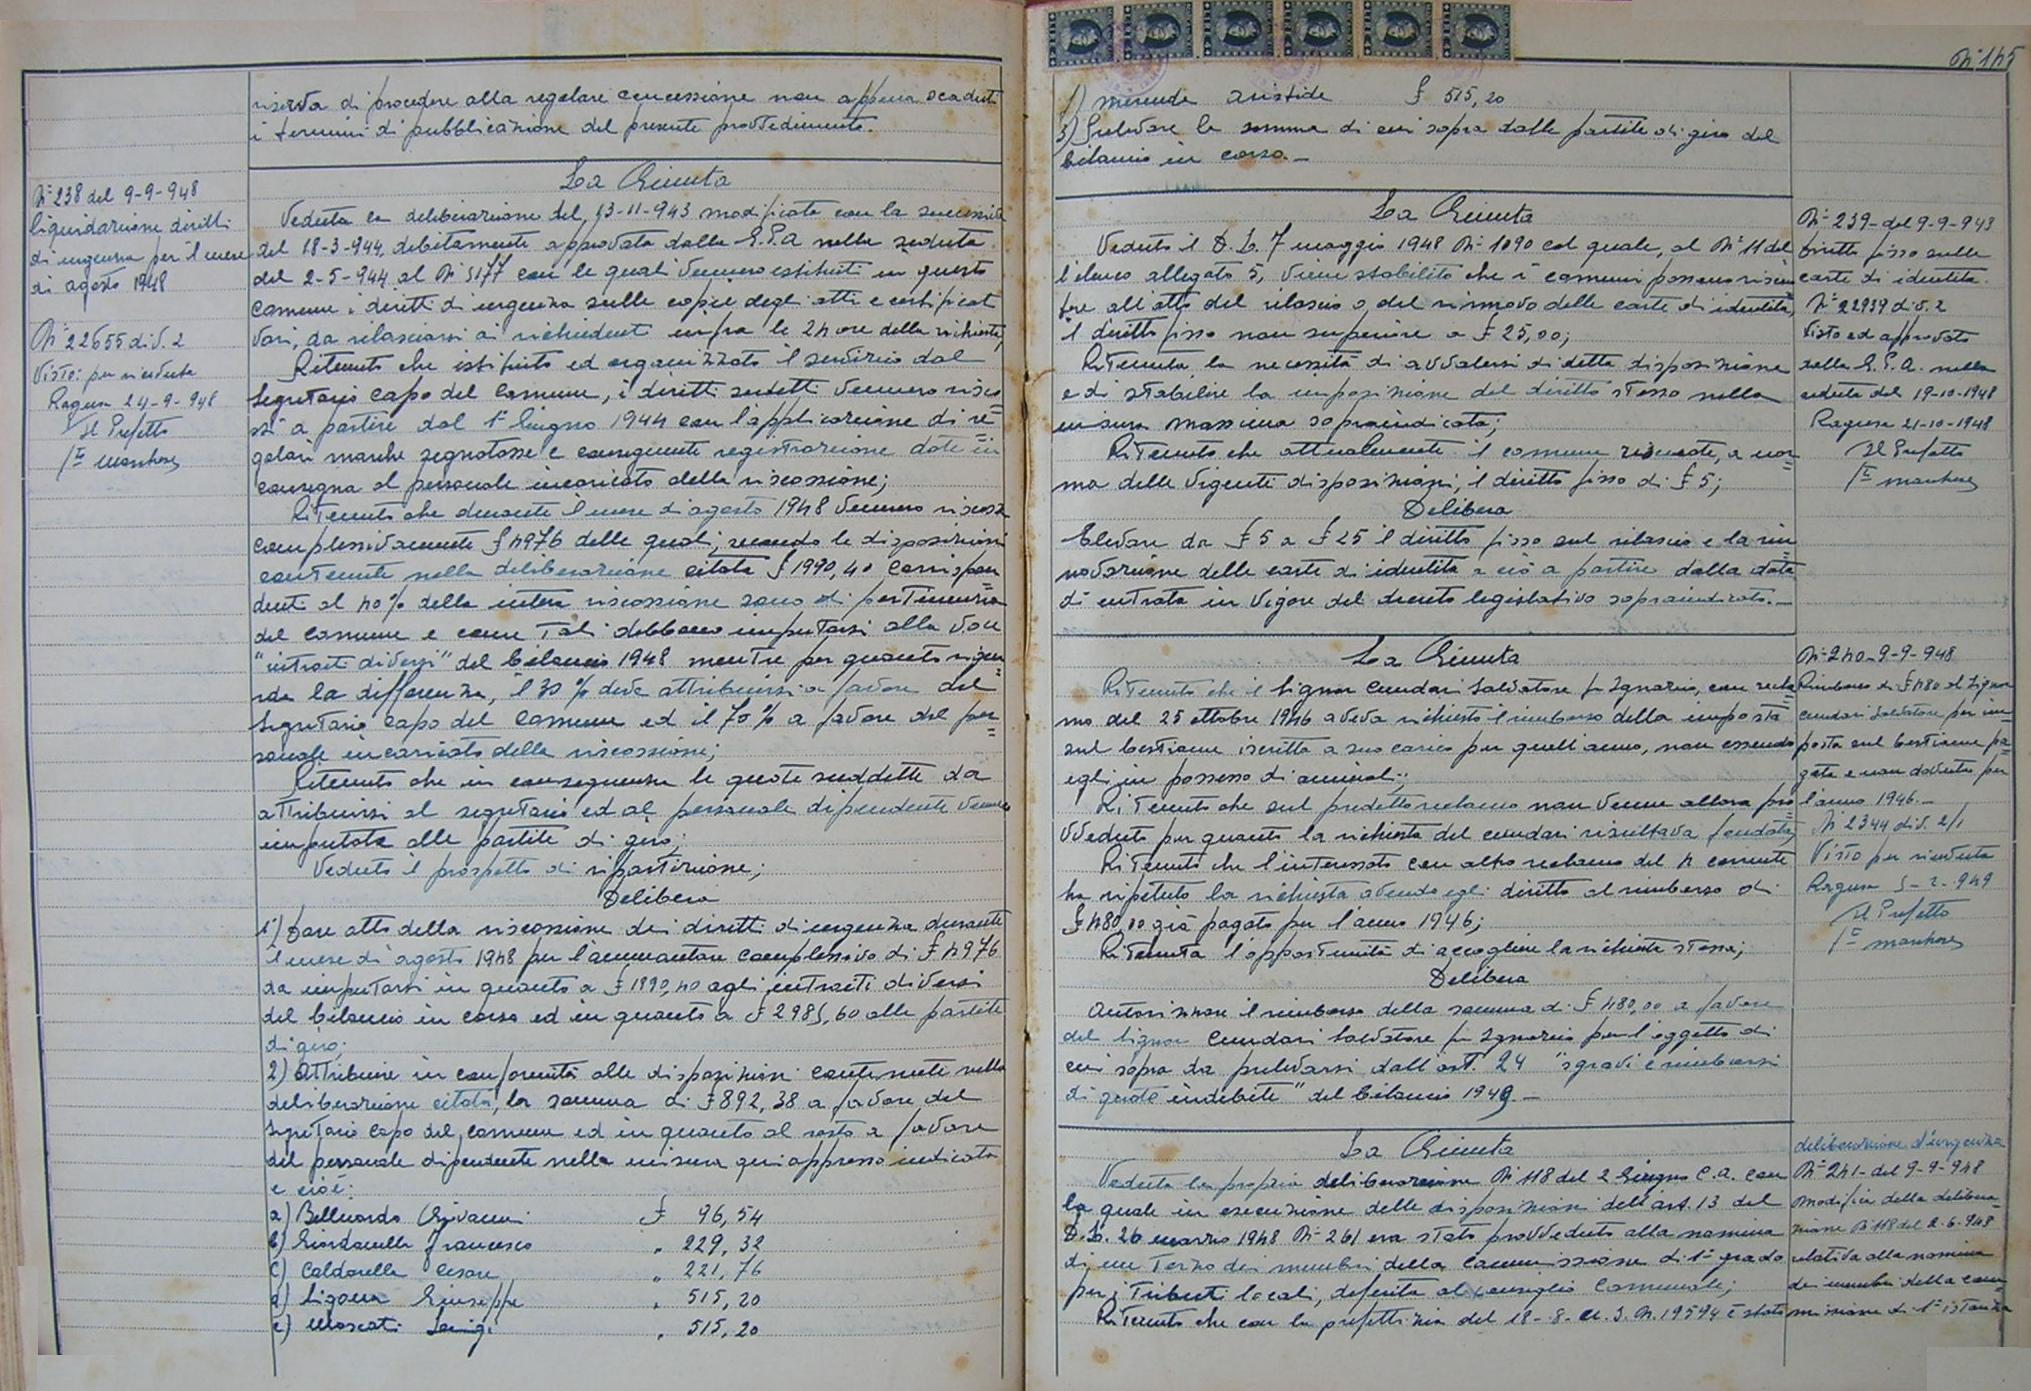 riserva di procedere alla regolare concessione non appena scaduti
i termini di pubblicazione del presente provvedimento.
La Giunta
N° 238 del 9-9-948
liquidazione diritti
di urgenza per il mese
di agosto 1948
N° 22655 div. 2
Visto: per ricevuta
Ragusa 24-9-948
Il Prefetto
Veduta la deliberazione del 13-11-943 modificata con la successiva
del 18-3-944, debitamente approvata dalla G.P.A nella seduta
del 2-5-944 al N° 5177 con le quali vennero istituiti in questo
comune i diritti di urgenza sulle copie degli atti e certificati
vari, da rilasciarsi ai richiedenti infra le 24 ore della richiesta;
Ritenuto che istituito ed organizzato il servizio dal
Segretario capo del Comune, i diritti suddetti vennero risco=
ssi a partire dal 1° Giugno 1944 con l'applicazione di re=
golari marche segnatasse e conseguente registrazione date in
consegna al personale incaricato della riscossione;
Ritenuto che durante il mese di agosto 1948 vennero riscosse
complessivamente £ 4976 delle quali, secondo le disposizioni
contenute nella deliberazione citata £ 1990,40 corrispon=
denti al 40% della intera riscossione sono di pertinenza
del comune e come tali debbono imputarsi alla voce
"introiti diversi" del bilancio 1948 mentre per quanto rigua=
rda la differenza, il 30% deve attribuirsi a favore del
Segretario capo del Comune ed il 70% a favore del per=
sonale incaricato della riscossione;
Ritenuto che in conseguenza le quote suddette da
attribuirsi al segretario ed al personale dipendente vanno
imputate alle partite di giro;
Veduto il prospetto di ripartizione;
Delibera
1°) Dare atto della riscossione dei diritti di urgenza durante
il mese di agosto 1948 per l'ammontare complessivo di £ 4976
da imputarsi in quanto a £ 1990,40 agli introiti diversi
del bilancio in corso ed in quanto a £ 2985,60 alle partite
di giro;
2) Attribuire in conformità alle disposizioni contenute nella
deliberazione citata, la somma di £ 892,38 a favore del
Segretario Capo del Comune ed in quanto al resto a favore
del personale dipendente nella misura qui appresso indicata
e cioè:
a) Belluardo Giovanni £ 96,54
b) Giordanella Francesco " 229,32
c) Caldarella Cesare " 221,76
d) Ligorra Giuseppe " 515,20
e) Moscati Luigi " 515,20
N° 145
f) Merenda Aristide £ 515,20
3) Prelevare la somma di cui sopra dalle partite di giro del
bilancio in corso.-
La Giunta
Veduto il D.L. 7 maggio 1948 N° 1090 col quale, al N° 11 del
l'elenco allegato 5, viene stabilito che i comuni possono riscuo
tere all'atto del rilascio o del rinnovo delle carte di identità,
il diritto fisso non superiore a £ 25,00;
Ritenuta la necessità di avvalersi di detta disposizione
e di stabilire la imposizione del diritto stesso nella
misura massima sopraindicata;
Ritenuto che attualmente il comune riscuote, a nor=
ma delle vigenti disposizioni, il diritto fisso di £ 5;
Delibera
Elevare da £ 5 a £ 25 il diritto fisso sul rilascio e la rin
novazione delle carte di identità e ciò a partire dalla data
di entrata in vigore del decreto legislativo sopraindicato.-
N° 239 - del 9-9-948
Diritto fisso sulle
carte di identità.
N° 22939 div. 2
Visto ed approvato
dalla G.P.A. nella
seduta del 19-10-1948
Ragusa 21-10-1948
Il Prefetto
La Giunta
Ritenuto che il Signor Cundari Salvatore fu Ignazio, con recla=
mo del 25 ottobre 1946 aveva richiesto il rimborso della imposta
sul bestiame iscritta a suo carico per quell'anno, non essendo
egli in possesso di animali;
Ritenuto che sul predetto reclamo non venne allora pro=
vveduto per quanto la richiesta del Cundari risultava fondata;
Ritenuto che l'interessato con altro reclamo del 4 corrente
ha ripetuto la richiesta avendo egli diritto al rimborso di
£ 480,00 già pagato per l'anno 1946;
Ritenuta l'opportunità di accogliere la richiesta stessa;
Delibera
Autorizzare il rimborso della somma di £ 480,00 a favore
del Signor Cundari Salvatore fu Ignazio per l'oggetto di
cui sopra da prelevarsi dall'art. 24 "sgravi e rimborsi
di quote indebite" del bilancio 1948.-
N° 240 - 9-9-948
Rimborso di £ 480 al Signor
Cundari Salvatore per im=
posta sul bestiame pa=
gata e non dovuta per
l'anno 1946.-
N° 2344 div. 2/1
Visto per ricevuta
Ragusa 5-2-949
Il Prefetto
La Giunta
Veduta la propria deliberazione N° 118 del 2 Giugno c.a. con
la quale in esecuzione delle disposizioni dell'art. 13 del
D.L. 26 marzo 1948 N° 261 era stato provveduto alla nomina
di un terzo dei membri della Commissione di 1° grado
per i Tributi locali, deferita al consiglio Comunale;
Ritenuto che con la prefettizia del 18-8- u.s. N. 19594 è stato
deliberazione d'urgenza
N° 241 - del 9-9-948
Modifica della delibera=
zione N° 118 del 2-6-948
relativa alla nomina
dei membri della com=
missione di 1° istanza